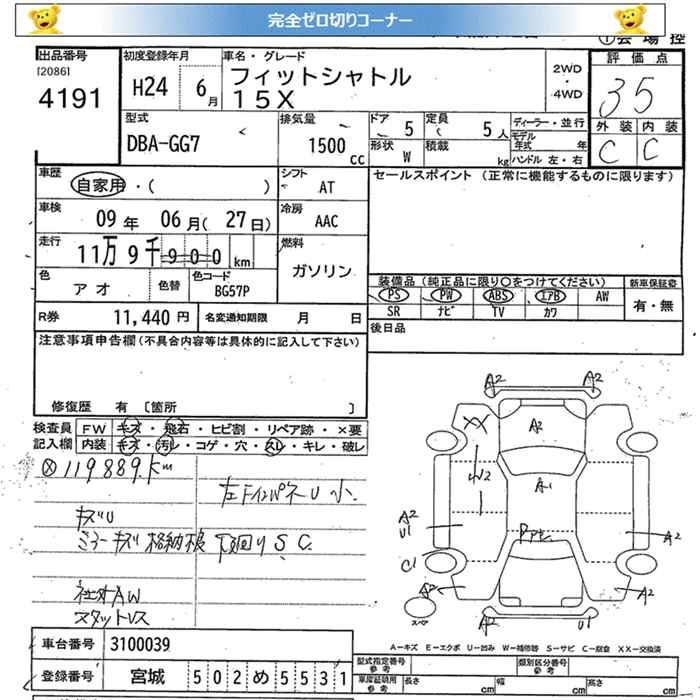 完全ゼロ切りコーナー
出品番号
[2086]
4191
初度登録年月
H24 6月
車名・グレード
フィットシャトル
15X
2WD
・
4WD
評価点
35
外装 内装
C C
型式
DBA-GG7
排気量
1500
cc
ドア 5
定員 5人
形状 W
積載 kg
ディーラー・並行
モデル年式 年
ハンドル 左・右
車歴
自家用・( )
シフト
AT
車検
09年 06月(27日)
冷房
AAC
走行
11万9千900km
燃料
ガソリン
色
アオ
色替
色コード
BG57P
R券 11,440円
名変通知期限 月 日
セールスポイント (正常に機能するものに限ります)
装備品(純正品に限り○をつけてください)
新車保証書
PS PW ABS エアB AW
有・無
SR ナビ TV カワ
後日品
注意事項申告欄(不具合内容等は具体的に記入して下さい)
修復歴 有 〔箇所 〕
検査員記入欄
FW キズ・飛石・ヒビ割・リペア跡・×要
内装 キズ・汚レ・コゲ・穴・スレ・キレ・破レ
119889km
キズU
ミラーキズ 格納根 下廻りS C
社外AW
スタットレス
A2 A2
XX A2
W2
A1
A2
U1
C1
A2
A2 A2
U1
スペア
A=キズ E=エクボ U=凹み W=補修跡 S=サビ C=腐食 XX=交換済
車台番号 3100039
登録番号 宮城 502め5531
型式指定番号
参考
類別区分番号
参考
車庫証明用
参考
長さ cm 幅 cm 高さ cm